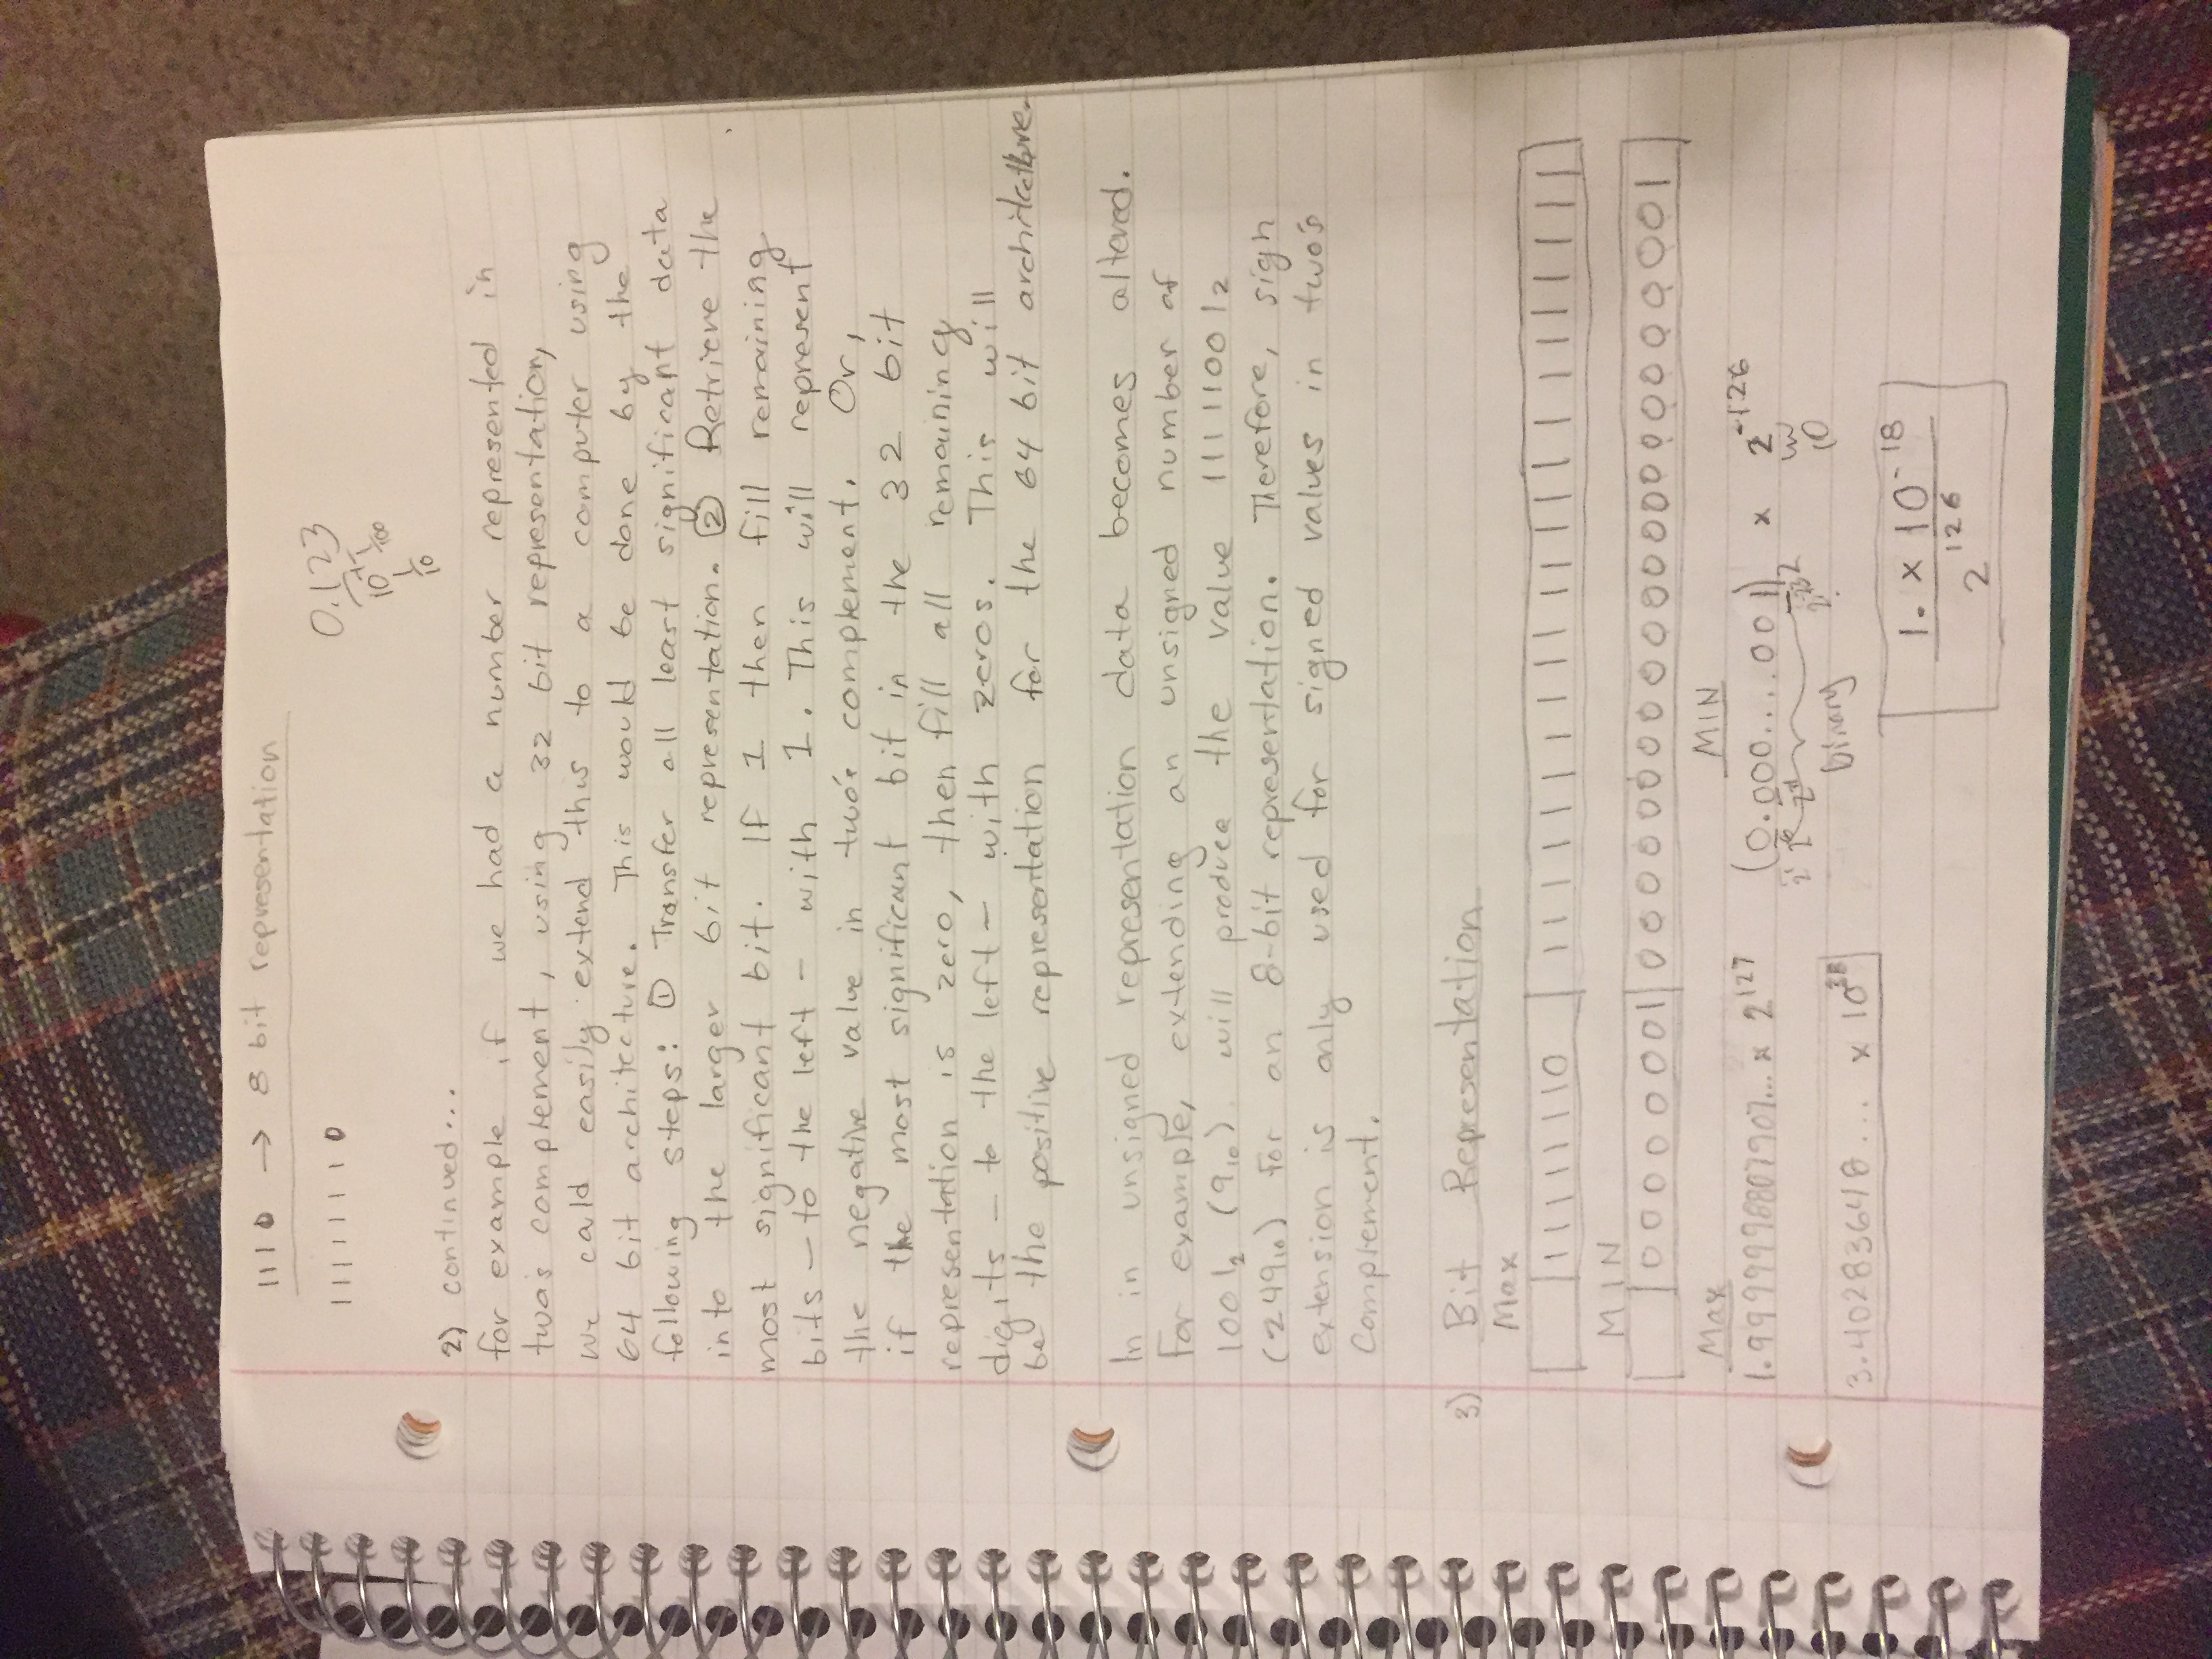 1110 → 8 bit representation
11111110
0.123
10 + 1/100
1/10
2) continued...
for example if we had a number represented in
two's complement, using 32 bit representation,
we cald easily extend this to a computer using
64 bit architecture. This would be done by the
following steps: ① Transfer all least significant data
into the larger bit representation. ② Retrieve the
most significant bit. If 1 then fill remaining
bits - to the left - with 1. This will represent
the negative value in two's complement. Or,
if the most significant bit in the 32 bit
representation is zero, then fill all remaining
digits - to the left - with zeros. This will
be the positive representation for the 64 bit architecture.
In in unsigned representation data becomes altered.
For example, extending an unsigned number of
1001₂ (9₁₀) will produce the value 11111001₂
(249₁₀) for an 8-bit representation. Therefore, sign
extension is only used for signed values in two's
Complement.
3) Bit Representation
Max
11111110 11111111111111111111111
MIN
00000001 00000000000000000000001
Max MIN
1.9999998807907... × 2¹²⁷ (0.000....001)₂ × 2⁻¹²⁶
binary 10
3.40283648... × 10³⁸
1. × 10⁻¹⁸
2¹²⁶